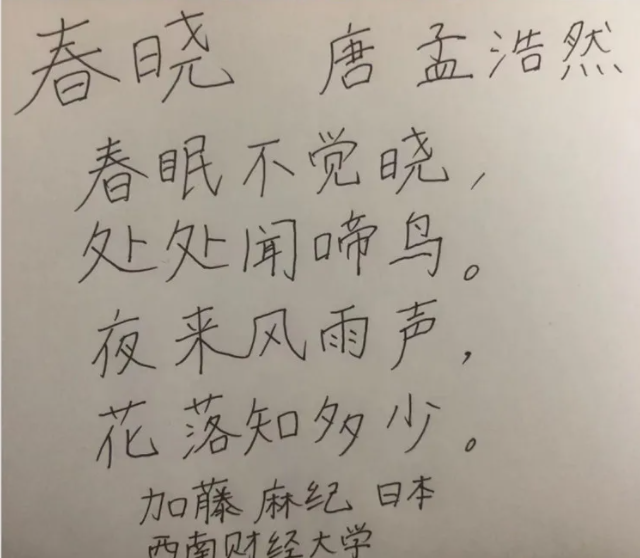 春晓 唐 孟浩然
春眠不觉晓，
处处闻啼鸟。
夜来风雨声，
花落知多少。
加藤 麻纪 日本
西南财经大学